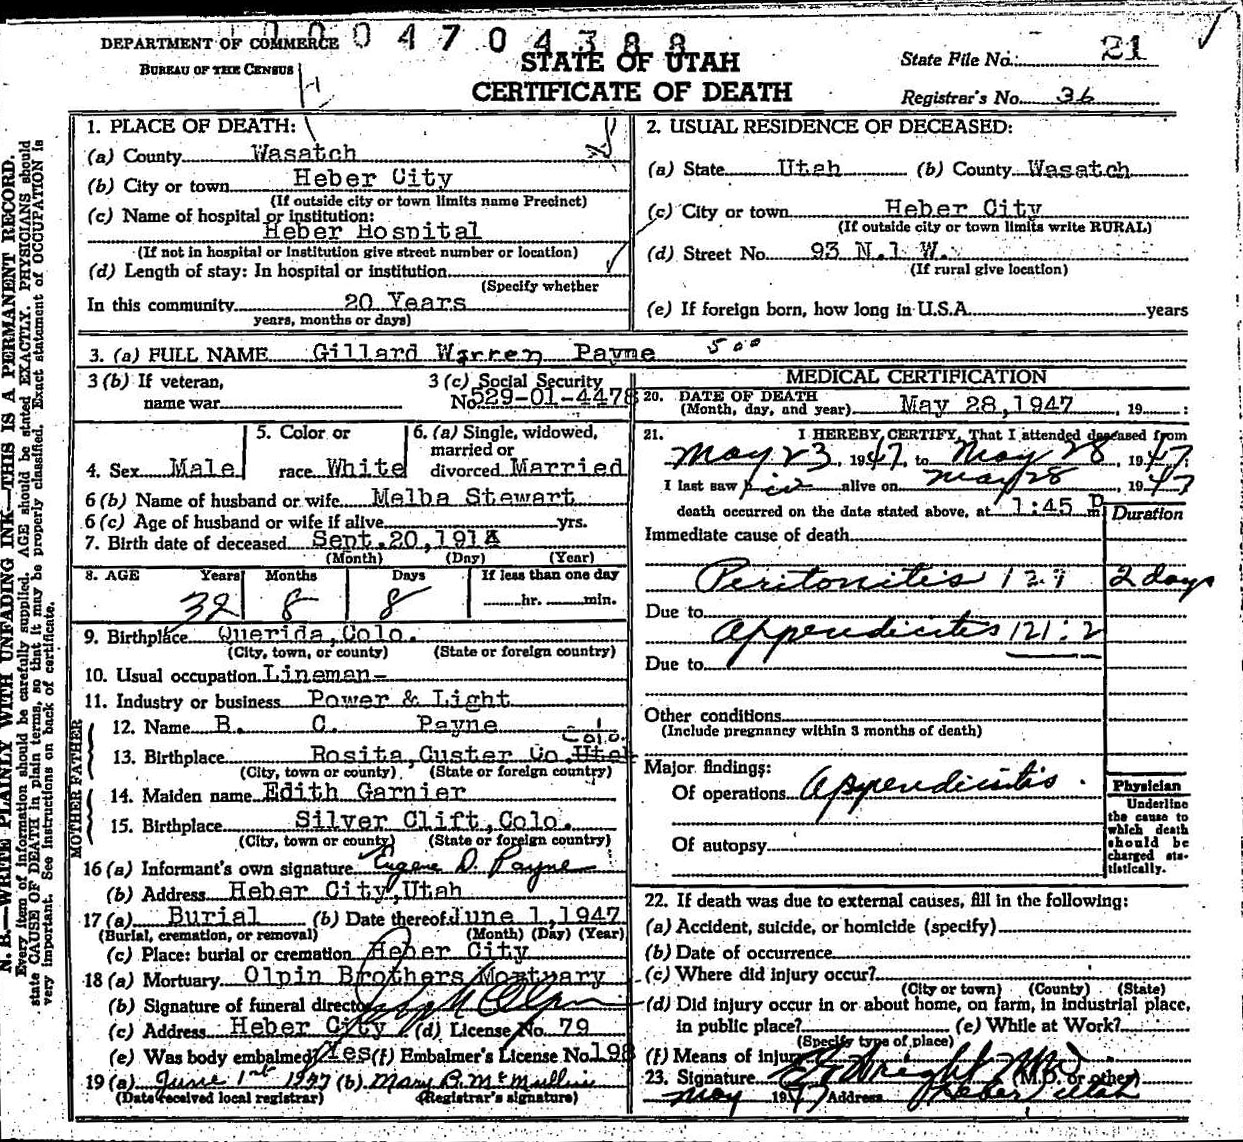 004704388
DEPARTMENT OF COMMERCE
BUREAU OF THE CENSUS
STATE OF UTAH
CERTIFICATE OF DEATH
State File No. 21
Registrar's No. 36
N. B.—WRITE PLAINLY WITH UNFADING INK—THIS IS A PERMANENT RECORD.
Every item of information should be carefully supplied. AGE should be stated EXACTLY. PHYSICIANS should
state CAUSE OF DEATH in plain terms, so that it may be properly classified. Exact statement of OCCUPATION is
very important. See instructions on back of certificate.
1. PLACE OF DEATH:
(a) County Wasatch
(b) City or town Heber City
(If outside city or town limits name Precinct)
(c) Name of hospital or institution:
Heber Hospital
(If not in hospital or institution give street number or location)
(d) Length of stay: In hospital or institution
(Specify whether
In this community 20 Years
years, months or days)
2. USUAL RESIDENCE OF DECEASED:
(a) State Utah (b) County Wasatch
(c) City or town Heber City
(If outside city or town limits write RURAL)
(d) Street No. 93 N.1 W.
(If rural give location)
(e) If foreign born, how long in U.S.A. years
3. (a) FULL NAME Gillard Warren Payne 500
3 (b) If veteran,
name war
3 (c) Social Security
No. 529-01-4478
4. Sex Male
5. Color or
race White
6. (a) Single, widowed,
married or
divorced Married
6 (b) Name of husband or wife Melba Stewart
6 (c) Age of husband or wife if alive yrs.
7. Birth date of deceased Sept. 20, 1914
(Month) (Day) (Year)
8. AGE Years Months Days If less than one day
32 8 8 hr. min.
9. Birthplace Querida, Colo.
(City, town, or county) (State or foreign country)
10. Usual occupation Lineman-
11. Industry or business Power & Light
FATHER
12. Name B. C. Payne
Colo.
13. Birthplace Rosita, Custer Co. Utah
(City, town or county) (State or foreign country)
MOTHER
14. Maiden name Edith Garnier
15. Birthplace Silver Clift, Colo.
(City, town or county) (State or foreign country)
16 (a) Informant's own signature Eugene D. Payne
(b) Address Heber City, Utah
17 (a) Burial (b) Date thereof June 1, 1947
(Burial, cremation, or removal) (Month) (Day) (Year)
(c) Place: burial or cremation Heber City
18 (a) Mortuary Olpin Brothers Mortuary
(b) Signature of funeral director Olpin
(c) Address Heber City (d) License No. 79
(e) Was body embalmed? Yes (f) Embalmer's License No. 198
19 (a) June 1st 1947 (b) Mary B. McMullin
(Date received local registrar) (Registrar's signature)
MEDICAL CERTIFICATION
20. DATE OF DEATH
(Month, day, and year) May 28, 1947, 19
21. I HEREBY CERTIFY, That I attended deceased from
May 23, 1947, to May 28, 1947
I last saw him alive on May 28 1947
death occurred on the date stated above, at 1:45 P m
Duration
Immediate cause of death
Peritonitis 129 2 days
Due to
Appendicitis 121:2
Due to
Other conditions
(Include pregnancy within 3 months of death)
Major findings:
Of operations Appendicitis.
Of autopsy
Physician
Underline
the cause to
which death
should be
charged sta-
tistically.
22. If death was due to external causes, fill in the following:
(a) Accident, suicide, or homicide (specify)
(b) Date of occurrence
(c) Where did injury occur?
(City or town) (County) (State)
(d) Did injury occur in or about home, on farm, in industrial place,
in public place? (e) While at Work?
(Specify type of place)
(f) Means of injury
23. Signature Wright MD (M.D. or other)
May 1947 Address Heber Utah